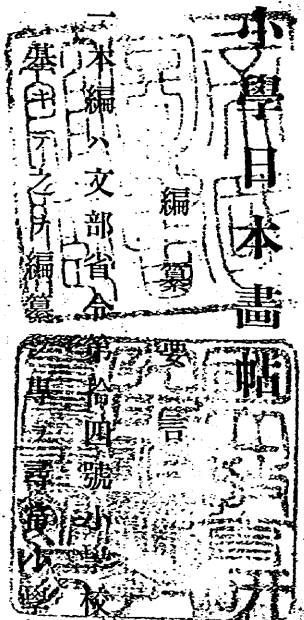 小學日本畫帖
編纂要言
一本編ハ文部省令第拾四號小學校
基キテ之ヲ編纂シ專ラ尋常小學